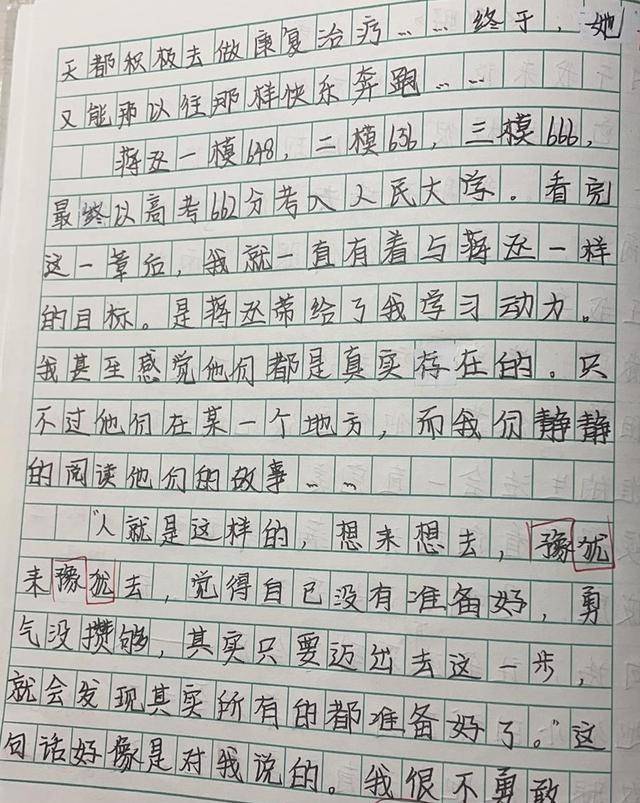 天都积极去做康复治疗……终于，她
又能那以往那样快乐奔跑……
蒋丞一模648，二模636，三模666，
最终以高考662分考入人民大学。看完
这一章后，我就一直有着与蒋丞一样
的目标。是蒋丞带给了我学习动力。
我甚至感觉他们都是真实存在的。只
不过他们在某一个地方，而我们静静
的阅读他们的故事……
“人就是这样的，想来想去，豫犹
来豫犹去，觉得自己没有准备好，勇
气没攒够，其实只要迈出去这一步，
就会发现其实所有的都准备好了。”这
句话好像是对我说的。我很不勇敢